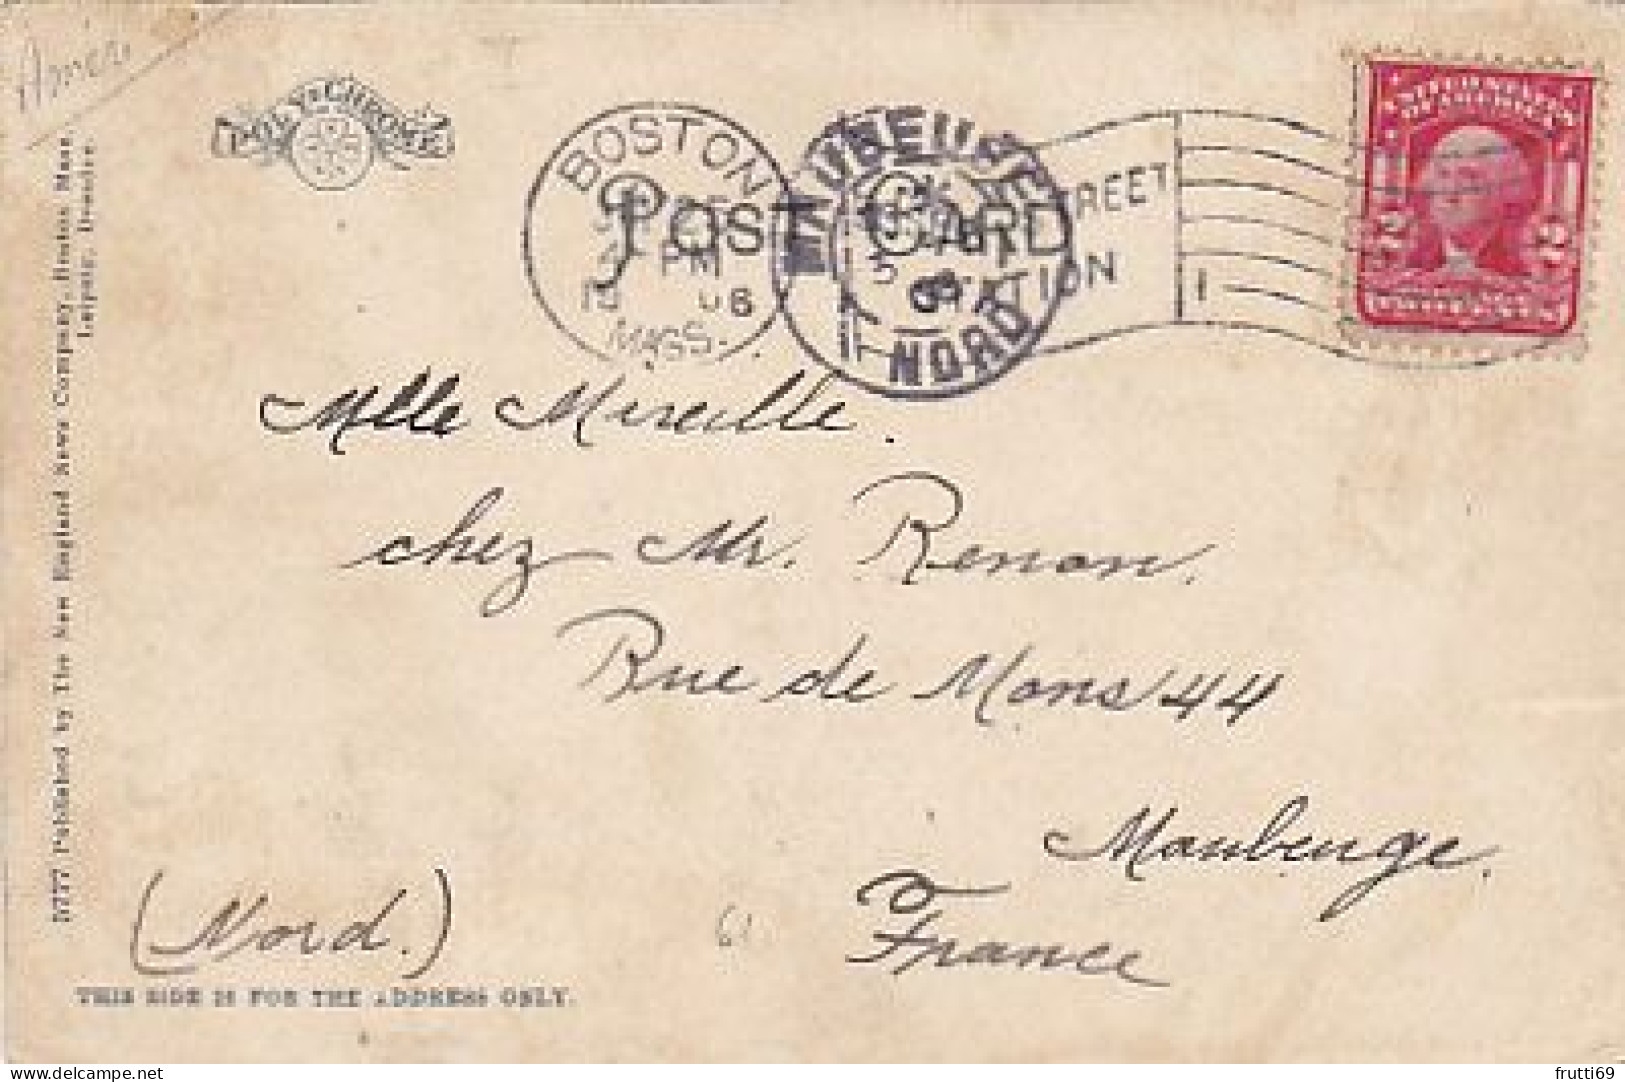 Amer
POLY-CHROME
BOSTON
PM
18 08
MASS.
MAUBEUGE
5
08
NORD
STREET
STATION
1
UNITED STATES
OF AMERICA
2 2
POST CARD
Mlle Mireille.
chez Mr. Renon.
Rue de Mons 44
Maubeuge.
(Nord.)
France
61
THIS SIDE IS FOR THE ADDRESS ONLY.
Published by The New England News Company, Boston Mass.
Leipzig, Dresden.
frutti69